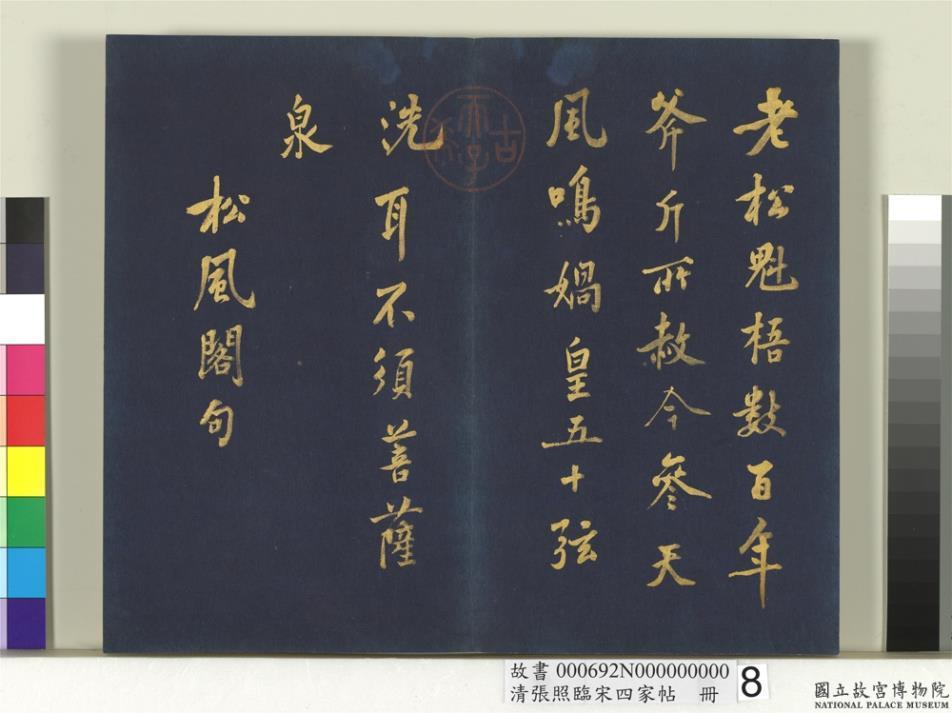 老松魁梧數百年
斧斤所赦今參天
風鳴媧皇五十弦
洗耳不須菩薩
泉
松風閣句
故書 000692N000000000
清張照臨宋四家帖 冊
8
國立故宮博物院
NATIONAL PALACE MUSEUM